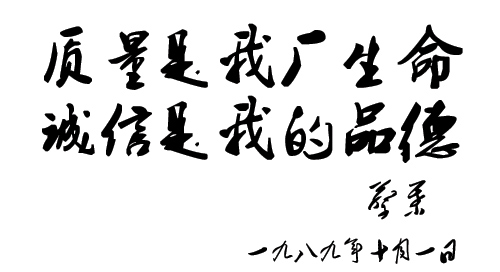 质量是我厂生命
诚信是我的品德
蔡
一九八九年十月一日